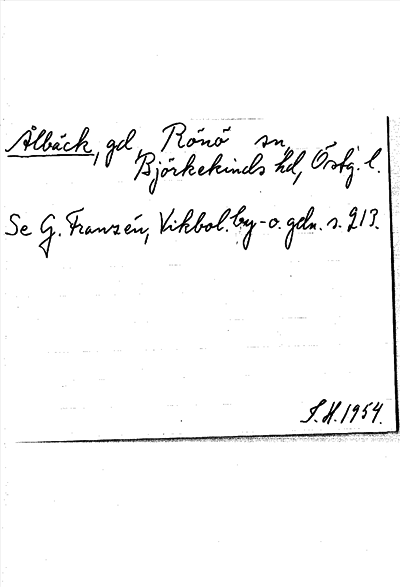 Ålbäck, gd, Rönö sn,
Björkekinds hd, Östg. l.
Se G. Franzén, Vikbol. by- o. gdn. s. 213.
S.H. 1954.